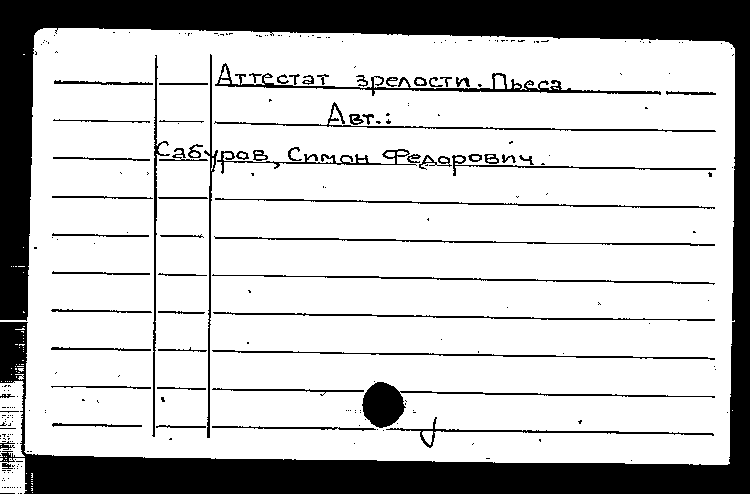 Аттестат зрелости. Пьеса.
Авт.:
Сабуров, Симон Федорович.